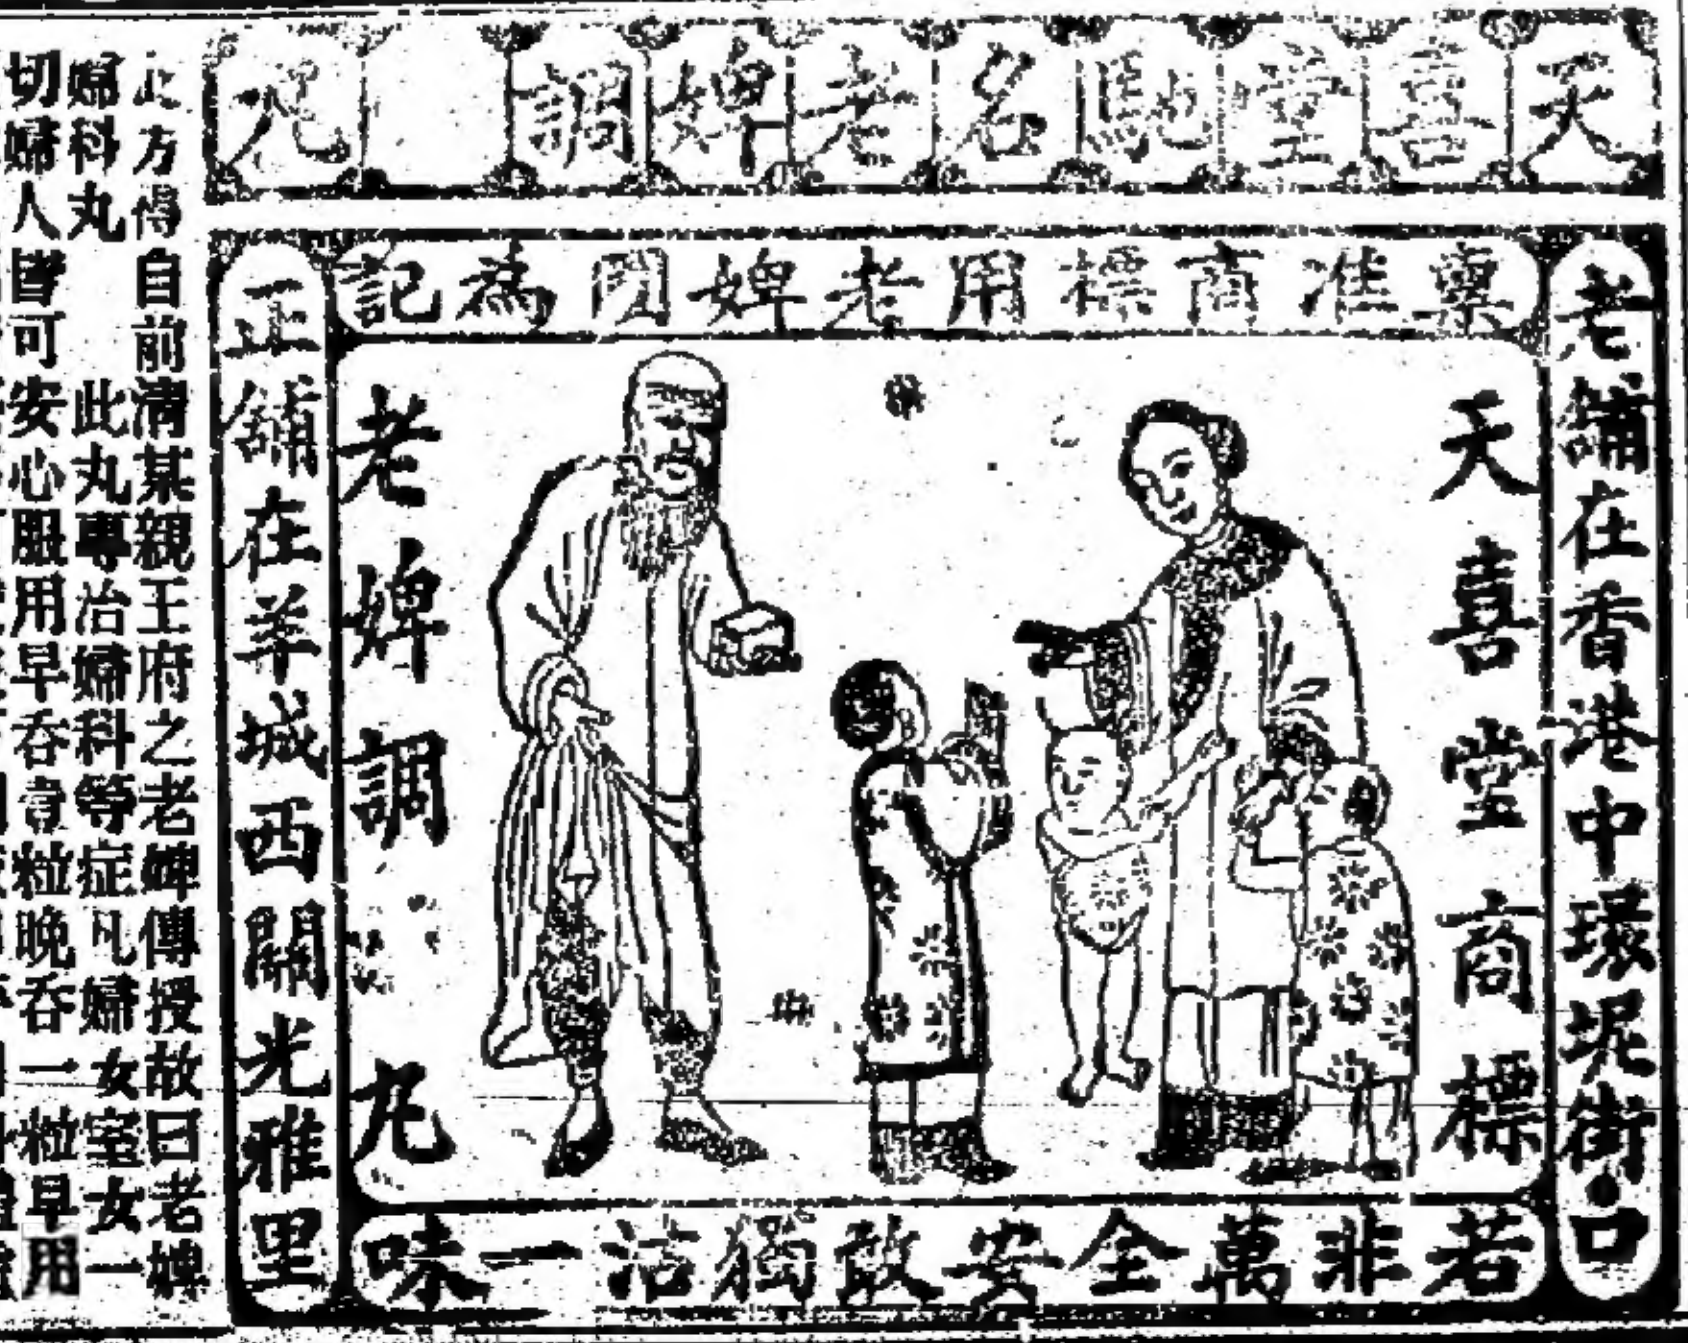 天喜堂馳名老婢調 丸
稟准商標用老婢圖為記
老舖在香港中環坭街口
天喜堂商標
老婢調 丸
正舖在羊城西關光雅里
若非萬全安敢獨沽一味
此方得自前清某親王府之老婢傳授故曰老婢
婦科丸 此丸專治婦科等症凡婦女室女一
切婦人皆可安心服用早吞壹粒晚吞一粒早用